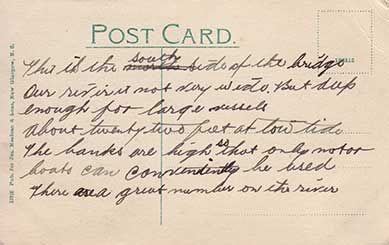 POST CARD.
south
This is the north side of the bridge
Our river is not very wide. But deep
enough for large vessels
about twenty two feet at low tide
The banks are high so that only motor
boats can conveniently be used
There are a great number on the river